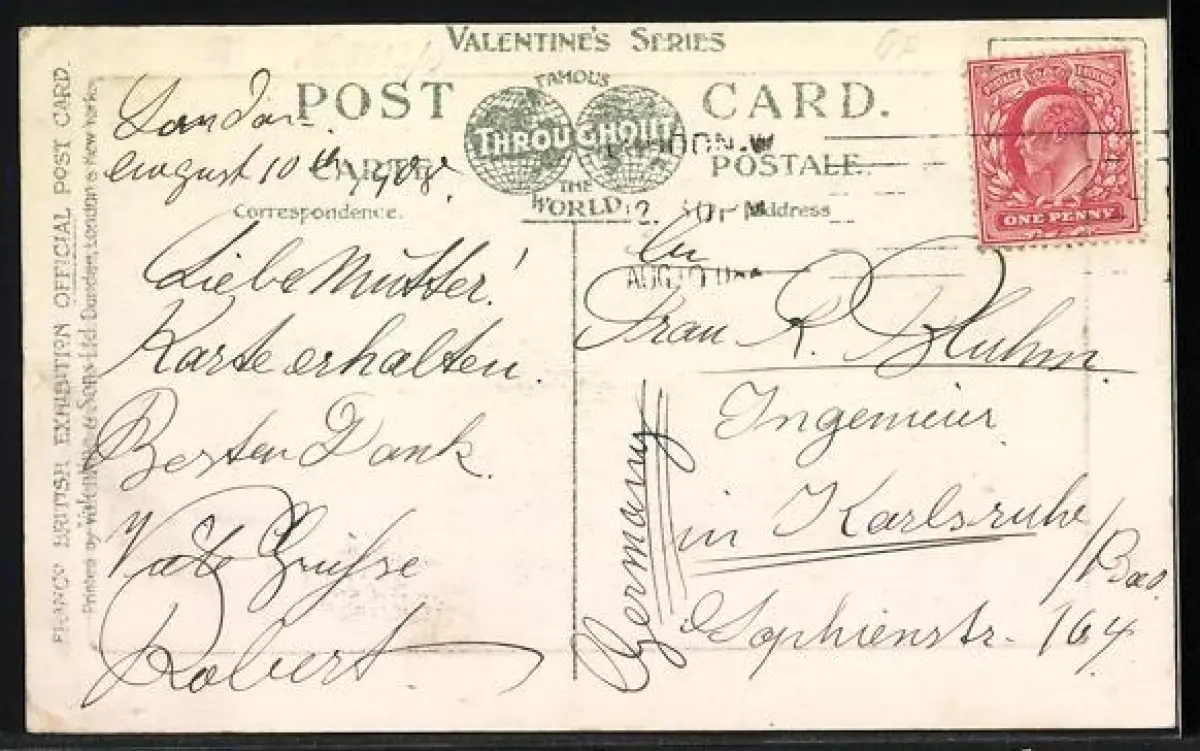 VALENTINE'S SERIES
POST CARD.
FAMOUS
THROUGHOUT
THE
WORLD
CARTE POSTALE.
Correspondence.
Address
FRANCO BRITISH EXHIBITION OFFICIAL POST CARD.
Printed by Valentine & Sons Ltd Dundee, London & New York
London.
August 10th 1908.
Liebe Mutter!
Karte erhalten.
Besten Dank.
Grüsse
Robert
LONDON.W
AUG 10
ONE PENNY
Frau R. Bluhm.
Ingenieur
in Karlsruhe
/Bad.
Sophienstr. 164
Germany